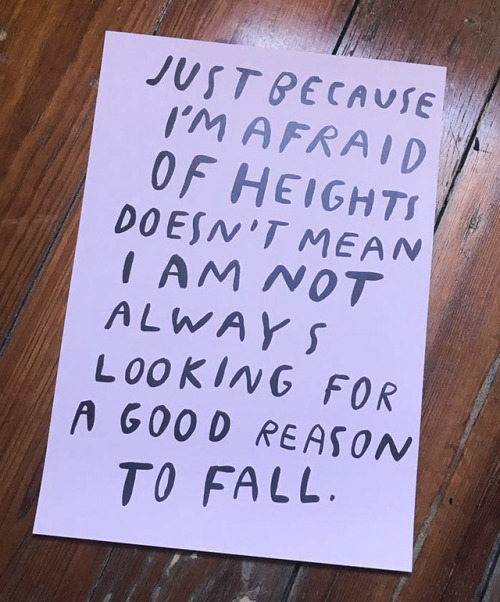 JUST BECAUSE
I'M AFRAID
OF HEIGHTS
DOESN'T MEAN
I AM NOT
ALWAYS
LOOKING FOR
A GOOD REASON
TO FALL.